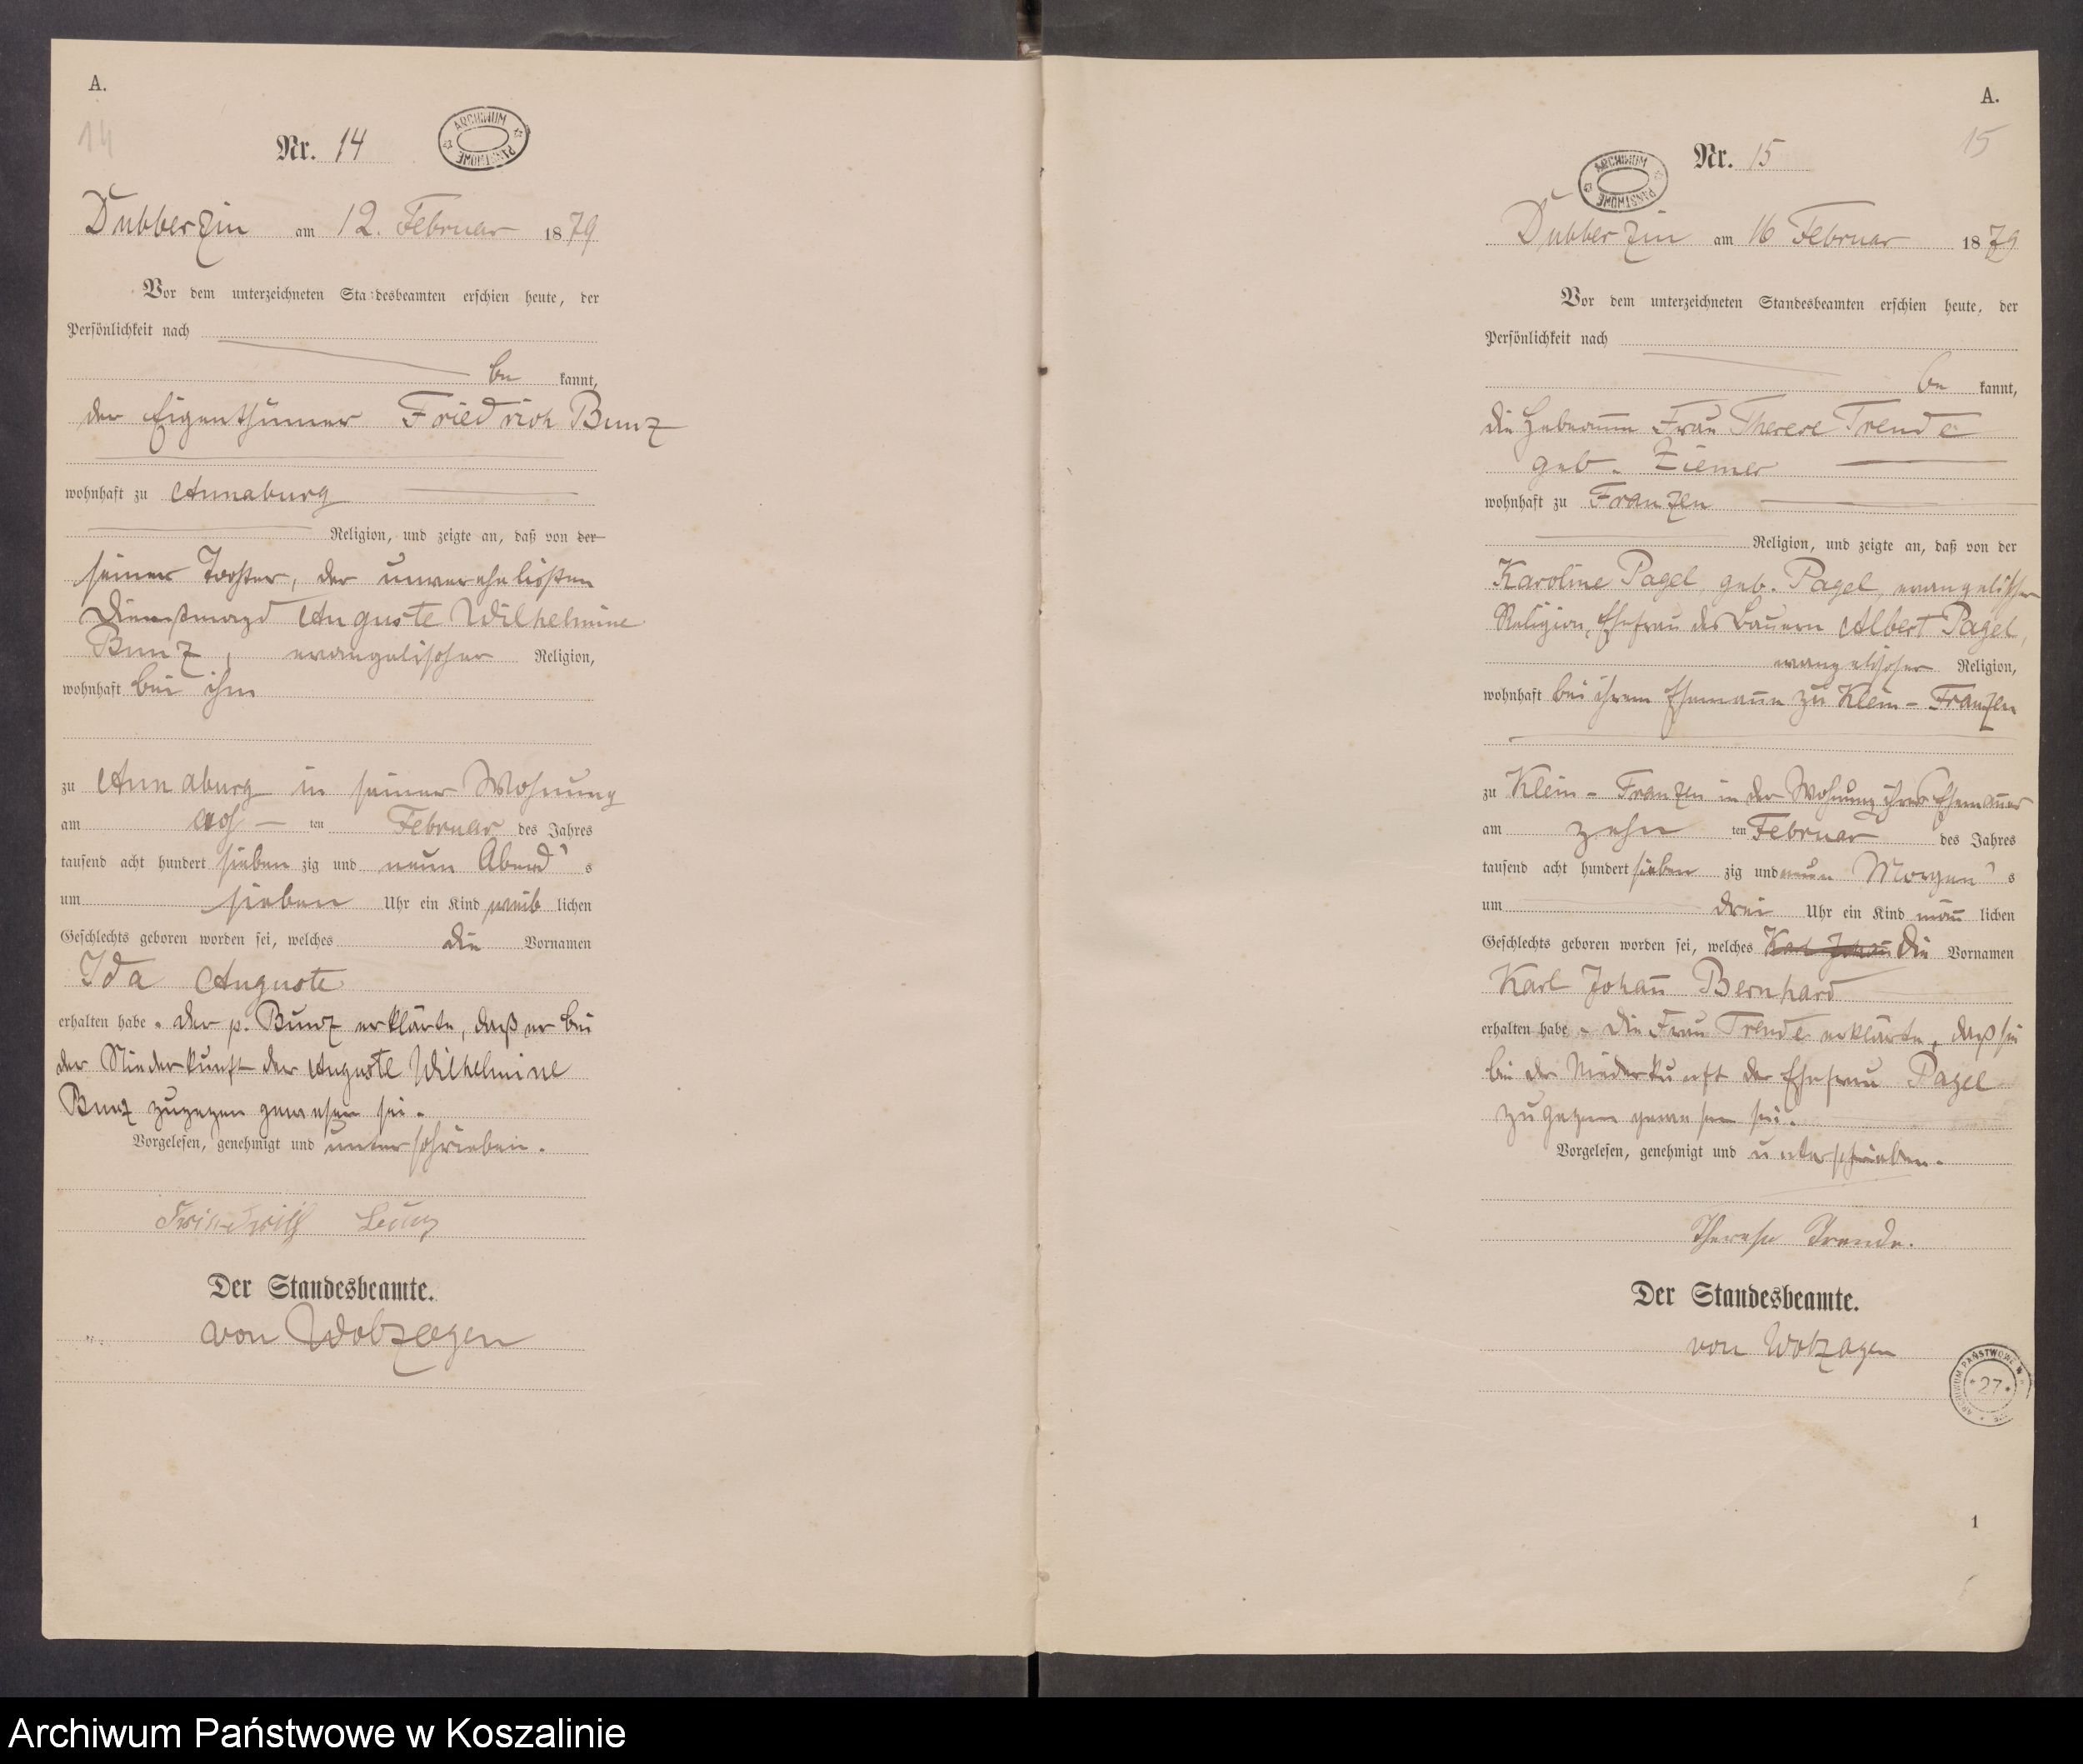 A.
14
Nr. 14
ARCHIWUM PAŃSTWOWE
Dubberzin am 12. Februar 1879
Vor dem unterzeichneten Standesbeamten erschien heute, der
Persönlichkeit nach
be kannt,
der Eigenthümer Friedrich Bunz
wohnhaft zu Annaburg
Religion, und zeigte an, daß von der
seiner Tochter, der unverehelichten
Dienstmagd Auguste Wilhelmine
Bunz, evangelischer Religion,
wohnhaft bei ihm
zu Annaburg in seiner Wohnung
am acht ten Februar des Jahres
tausend acht hundert sieben zig und neun Abend's
um sieben Uhr ein Kind weib lichen
Geschlechts geboren worden sei, welches die Vornamen
Ida Auguste
erhalten habe. der p. Bunz erklärte, daß er bei
der Niederkunft der Auguste Wilhelmine
Bunz zugegen gewesen sei.
Vorgelesen, genehmigt und unterschrieben.
Friedrich Bunz
Der Standesbeamte.
von Wobzagen
A.
15
Nr. 15
ARCHIWUM PAŃSTWOWE
Dubberzin am 16 Februar 1879
Vor dem unterzeichneten Standesbeamten erschien heute, der
Persönlichkeit nach
be kannt,
die Hebeamme Frau Therese Trende
geb. Ziemer
wohnhaft zu Franzen
Religion, und zeigte an, daß von der
Karoline Pagel, geb. Pagel, evangelischer
Religion, Ehefrau des Bauern Albert Pagel,
evangelischer Religion,
wohnhaft bei ihrem Ehemann zu Klein-Franzen
zu Klein-Franzen in der Wohnung ihres Ehemannes
am zehn ten Februar des Jahres
tausend acht hundert sieben zig und neun Morgen's
um drei Uhr ein Kind männ lichen
Geschlechts geboren worden sei, welches Karl Johann die Vornamen
Karl Johann Bernhard
erhalten habe. die Frau Trende erklärte, daß sie
bei der Niederkunft der Ehefrau Pagel
zugegen gewesen sei.
Vorgelesen, genehmigt und unterschrieben.
Therese Trende.
Der Standesbeamte.
von Wobzagen
ARCHIWUM PAŃSTWOWE W
27
1
Archiwum Państwowe w Koszalinie